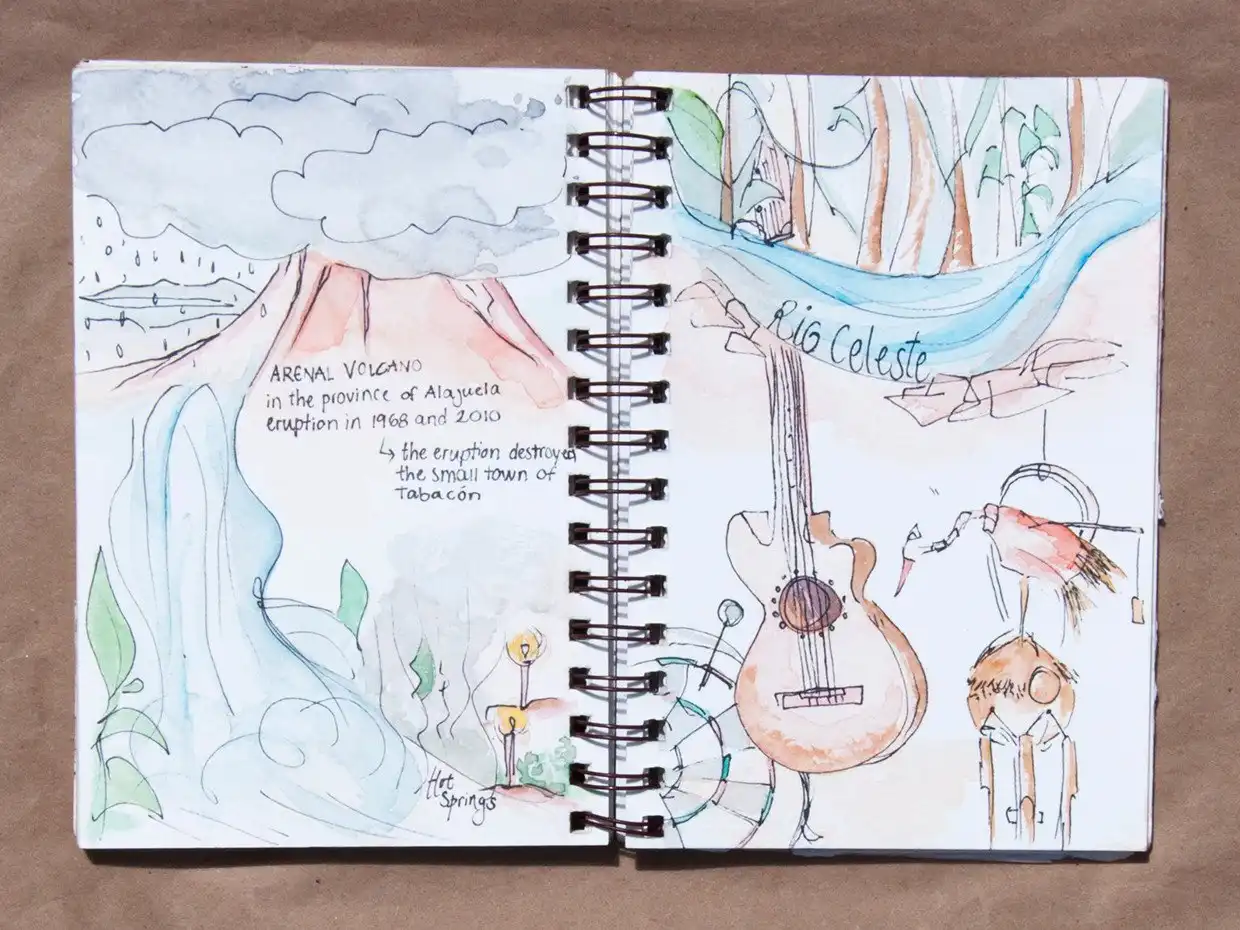 ARENAL VOLCANO
in the province of Alajuela
eruption in 1968 and 2010
↳ the eruption destroyed
the small town of
Tabacón
Hot
Springs
Rio Celeste